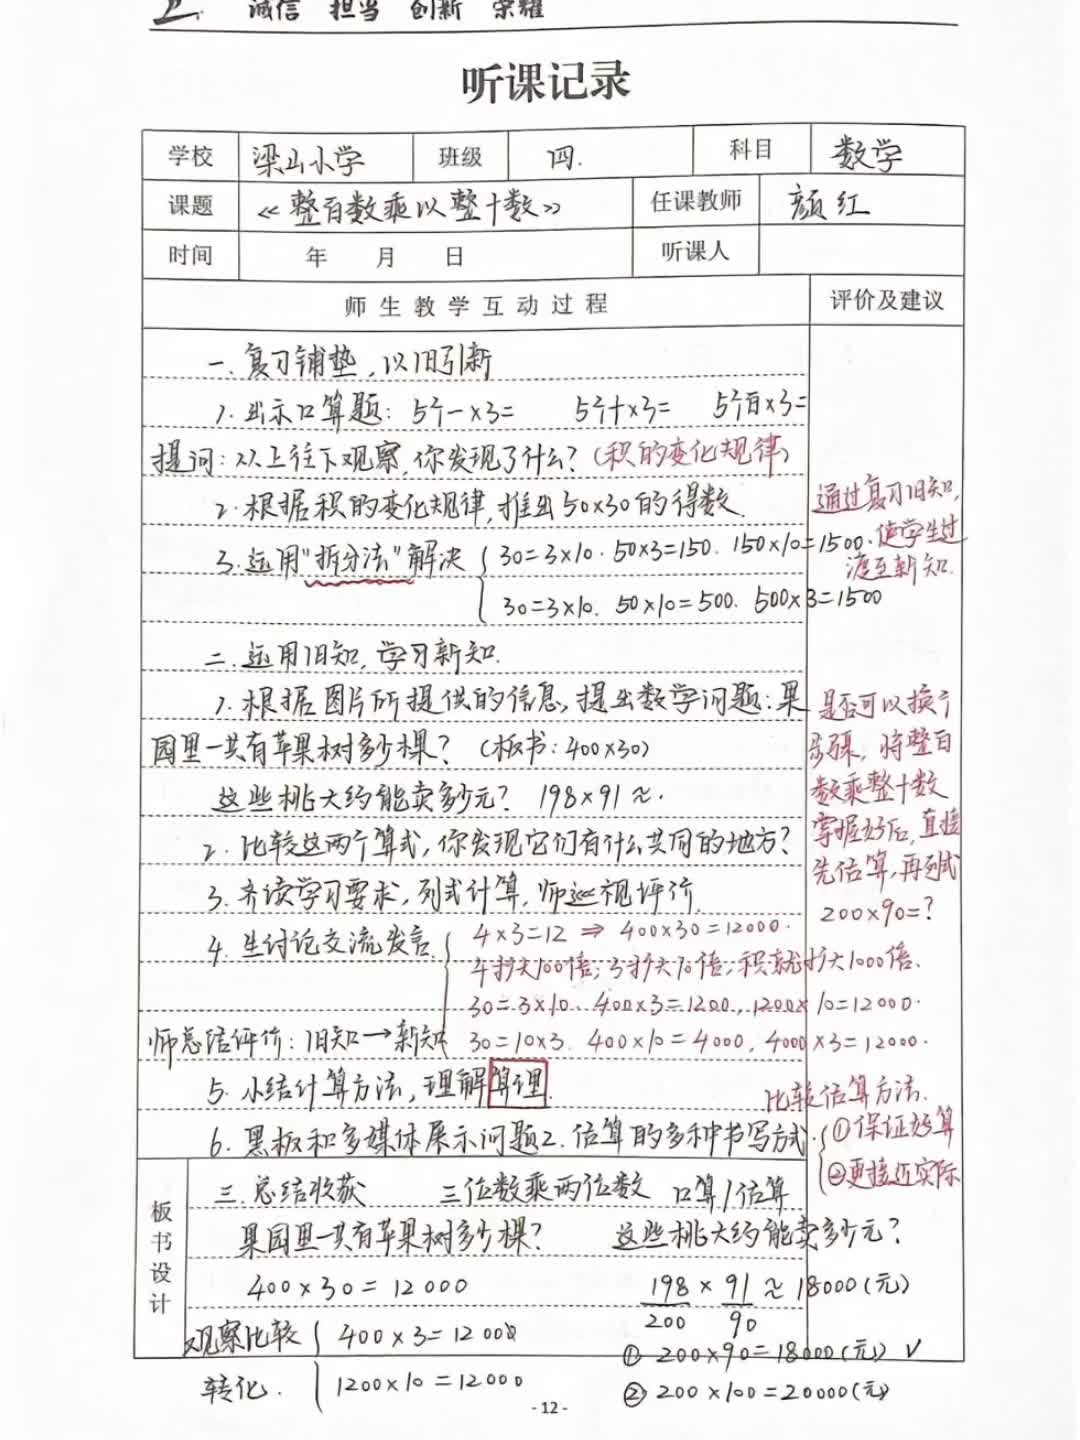 诚信 担当 创新 荣耀
听课记录
学校 梁山小学 班级 四. 科目 数学
课题 《整百数乘以整十数》 任课教师 颜红
时间 年 月 日 听课人
师生教学互动过程 评价及建议
一.复习铺垫,以旧引新
1.出示口算题: 5个一×3= 5个十×3= 5个百×3=
提问:从上往下观察,你发现了什么?(积的变化规律)
2.根据积的变化规律,推出50×30的得数.
通过复习旧知,
使学生过
渡至新知.
3.运用"拆分法"解决 30=3×10. 50×3=150. 150×10=1500.
30=3×10. 50×10=500. 500×3=1500
二.运用旧知,学习新知.
1.根据图片所提供的信息,提出数学问题:果
园里一共有苹果树多少棵?(板书:400×30)
这些桃大约能卖多少元? 198×91≈.
2.比较这两个算式,你发现它们有什么共同的地方?
3.齐读学习要求,列式计算,师巡视评价.
是否可以换个
步骤,将整百
数乘整十数
掌握好后,直接
先估算,再列式
200×90=?
4.生讨论交流发言. 4×3=12 ⇒ 400×30=12000.
4扩大100倍;3扩大10倍,积就扩大1000倍.
30=3×10. 400×3=1200, 1200×10=12000.
师总结评价:旧知→新知 30=10×3. 400×10=4000, 4000×3=12000.
5.小结计算方法,理解算理.
6.黑板和多媒体展示问题2.估算的多种书写方式.
比较估算方法.
①保证好算
②更接近实际
板书设计
三.总结收获 三位数乘两位数 口算/估算
果园里一共有苹果树多少棵? 这些桃大约能卖多少元?
400×30=12000 198×91≈18000(元)
200 90
观察比较 400×3=1200
①200×90=18000(元) ✓
转化. 1200×10=12000 ②200×100=20000(元)
-12-